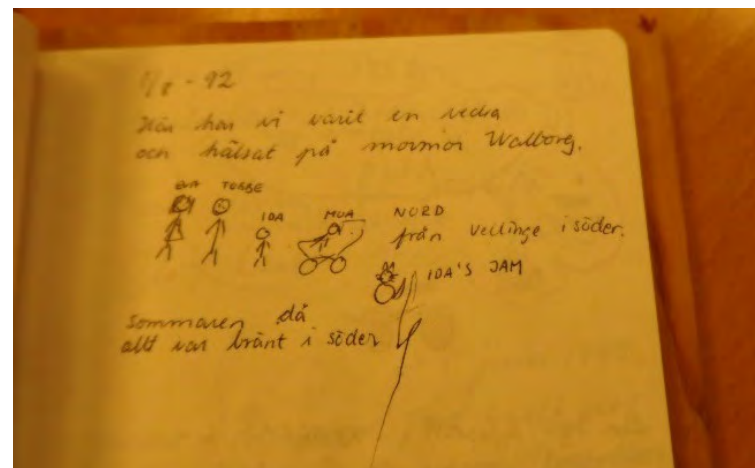 1/8 - 92
Här har vi varit en vecka
och hälsat på mormor Walborg.
EVA TOBBE
IDA MOA NORD
från Vellinge i söder.
IDA'S JAM
Sommaren då
allt var bränt i söder